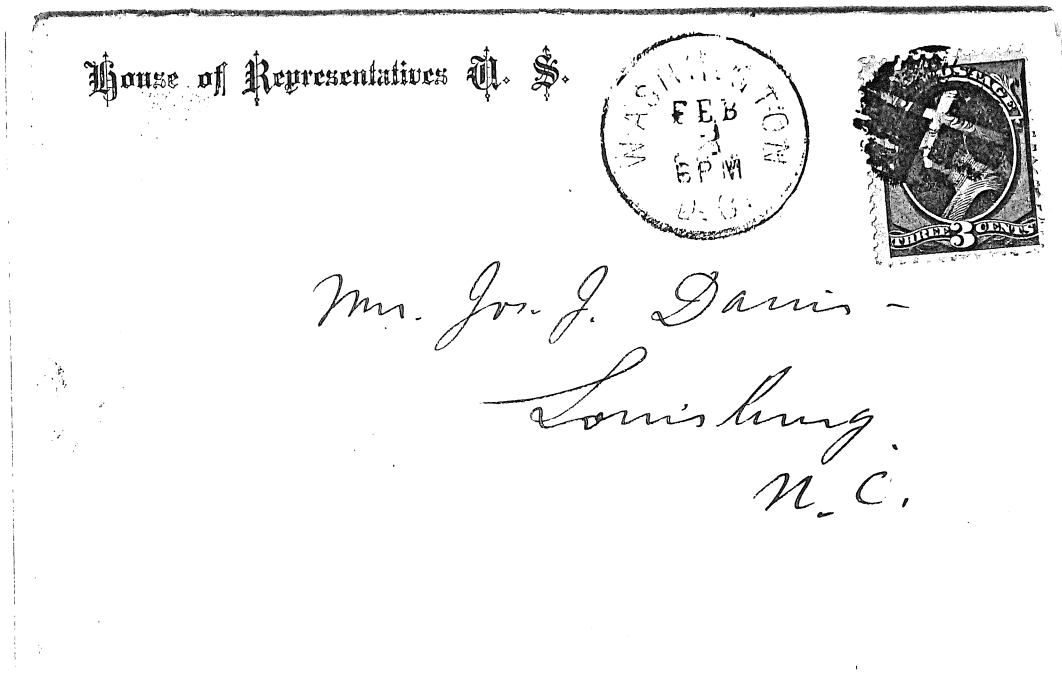 House of Representatives U. S.
WASHINGTON
FEB
6 PM
POSTAGE
THREE 3 CENTS
Mr. Jos. J. Davis -
Louisburg.
N. C.